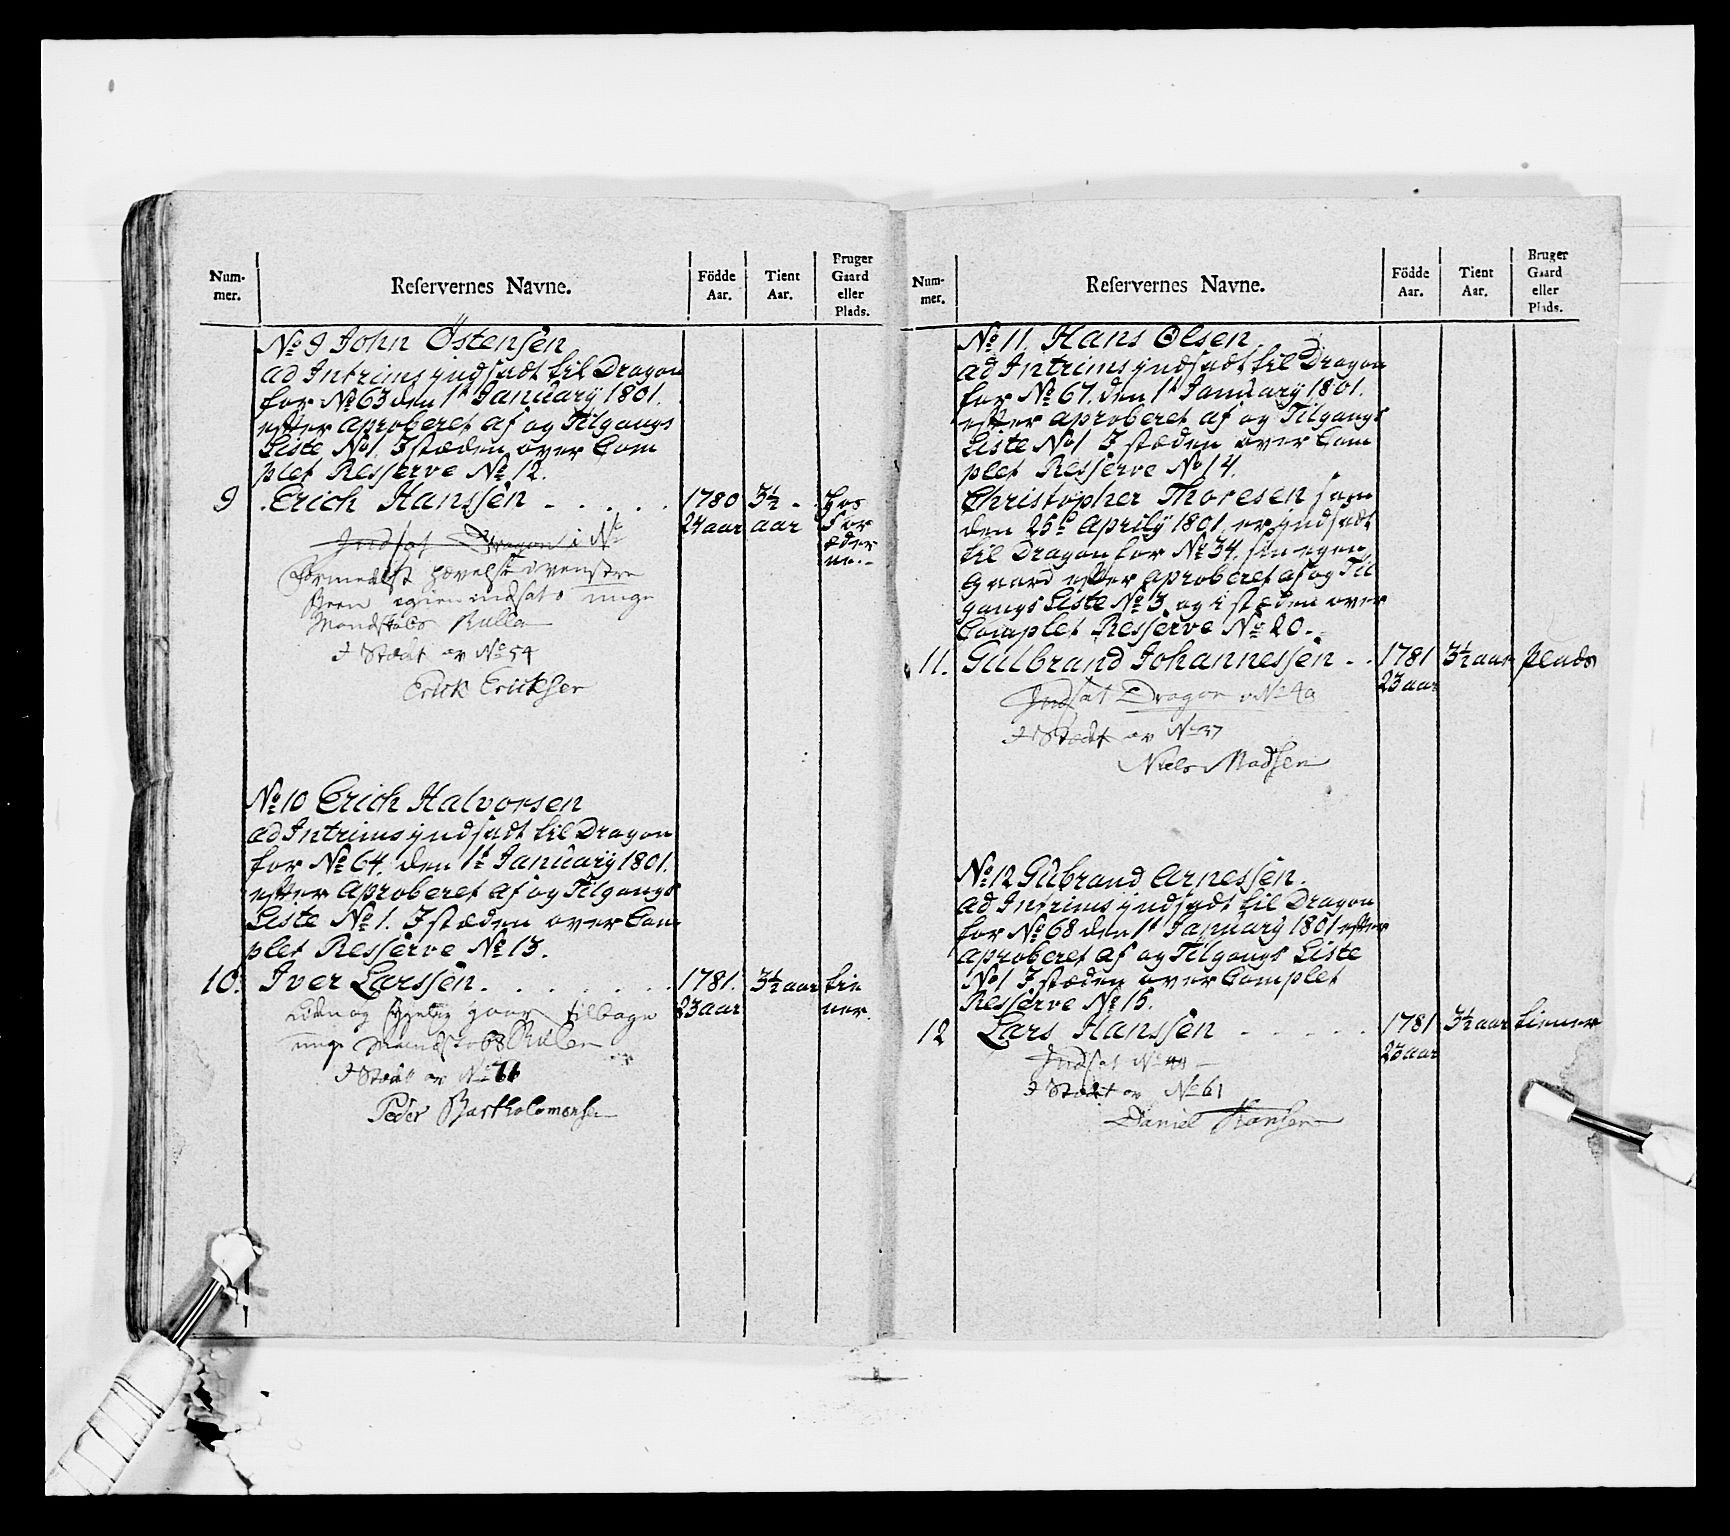 Num-
mer.
Reservernes Navne.
Födde
Aar.
Tient
Aar.
Bruger
Gaard
eller
Plads.
No 9 John Östensen
ad Intrims jndsadt til Dragon
for No 63 den 1t Januarÿ 1801.
efter aproberet af og Tilgangs
Liste No 1. I stæden over Com
plet Resserve No 12.
9 Erich Hanssen 1780 3½ hos
24 aar aar For
æder
ne.
Indsat Dragon i No
Formedelst hævelse i venstre
Been igien indsat unge
Mandskabs Rulla
I Stædt ov No 54
Erick Ericksen
No 10 Erich Halvorsen
ad Intrims jndsadt til Dragon
for No 64. den 1t Januarÿ 1801.
efter aproberet af og Tilgangs
Liste No 1. I stæden over Com
plet Resserve No 13.
10. Iver Larssen 1781. 3½ aar tie
23 aar ner.
Liden og gaar tilbage
unge Mandskabs Rulla
I Stædt ov No 71
Peder Bartholomersen
Num-
mer.
Reservernes Navne.
Födde
Aar.
Tient
Aar.
Bruger
Gaard
eller
Plads.
No 11. Hans Olsen
ad Intrims jndsadt til Dragon
for No 67. den 1t Januarÿ 1801.
efter aproberet af og Tilgangs
Liste No 1 I stæden over Com
plet Resserve No 14
Christopher Thoresen som
den 25d Aprilÿ 1801 er jndsadt
til Dragon for No 34. sin egen
Gaard efter aproberet af og Til
gangs Liste No 3. og i stæden over
Complet Resserve No 20.
11. Gulbrand Johannessen 1781 3½ aar plads
23 aar
Indsat Dragon No 49
I Stædt ov No 37
Niels Madsen
No 12 Gulbrand Arnessen.
ad Intrims jndsadt til Dragon
for No 68 den 1t Januarÿ 1801 efter
aproberet af og Tilgangs Liste
No 1 I stæden over Complet
Resserve No 15.
12 Lars Hanssen 1781 3½ aar tiener
23 aar
Indsat No 44
I Stædt ov No 61
Daniel Hansen